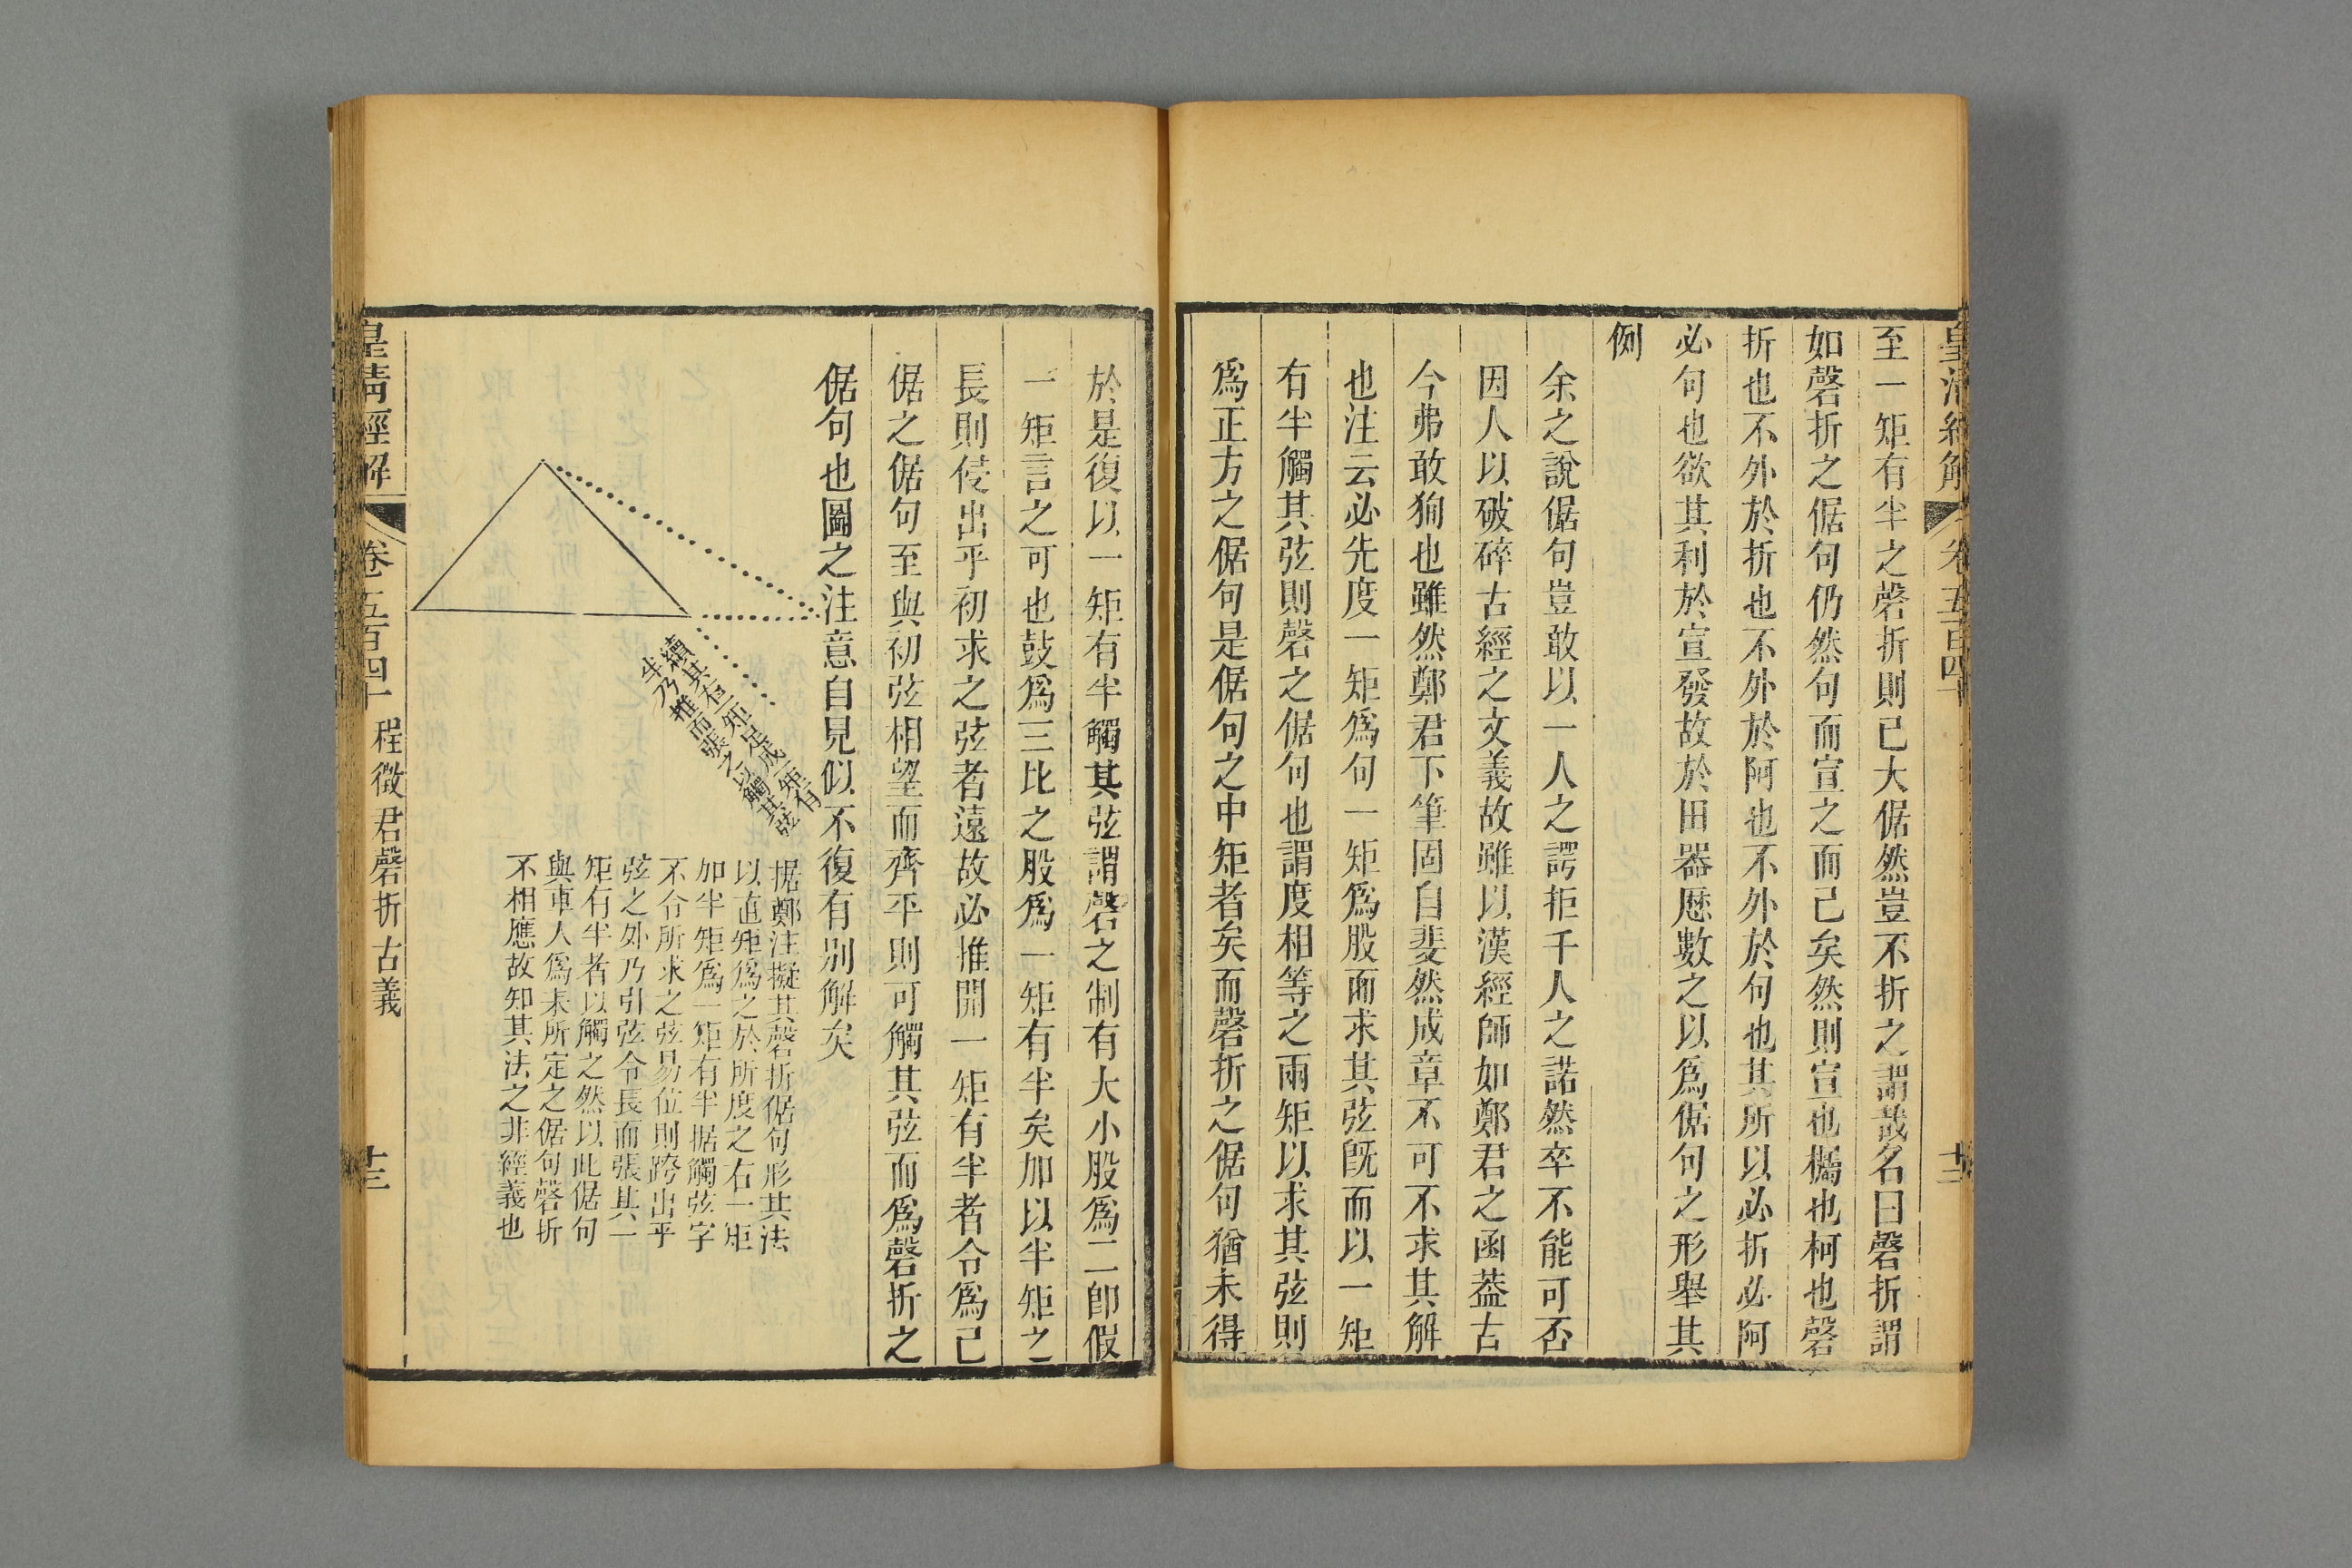 至一矩有半之磬折則已大倨然豈不折之謂哉名曰磬折謂
如磬折之倨句仍然句而宣之而已矣然則宣也欘也柯也磬
折也不外於折也不外於阿也不外於句也其所以必折必阿
必句也欲其利於宣發故於田器懸數之以爲倨句之形舉其
例
余之說倨句豈敢以一人之諤拒千人之諾然卒不能可否
因人以破碎古經之文義故雖以漢經師如鄭君之函葢古
今弗敢狥也雖然鄭君下筆固自斐然成章不可不求其解
也注云必先度一矩爲句一矩爲股而求其弦旣而以一矩
有半觸其弦則磬之倨句也謂度相等之兩矩以求其弦則
爲正方之倨句是倨句之中矩者矣而磬折之倨句猶未得
於是復以一矩有半觸其弦謂磬之制有大小股爲二卽假
一矩言之可也鼓爲三比之股爲一矩有半矣加以半矩之
長則侵出乎初求之弦者遠故必推開一矩有半者令爲已
倨之倨句至與初弦相望而齊平則可觸其弦而爲磬折之
倨句也圖之注意自見似不復有別解矣
續其右一矩足成一矩有
半乃推而張之以觸其弦
据鄭注擬其磬折倨句形其法
以直矩爲之於所度之右一矩
加半矩爲一矩有半据觸弦字
不合所求之弦易位則跨出乎
弦之外乃引弦令長而張其一
矩有半者以觸之然以此倨句
與車人爲耒所定之倨句磬折
不相應故知其法之非經義也
皇淸經解
卷五百四十
程徵君磬折古義
十三